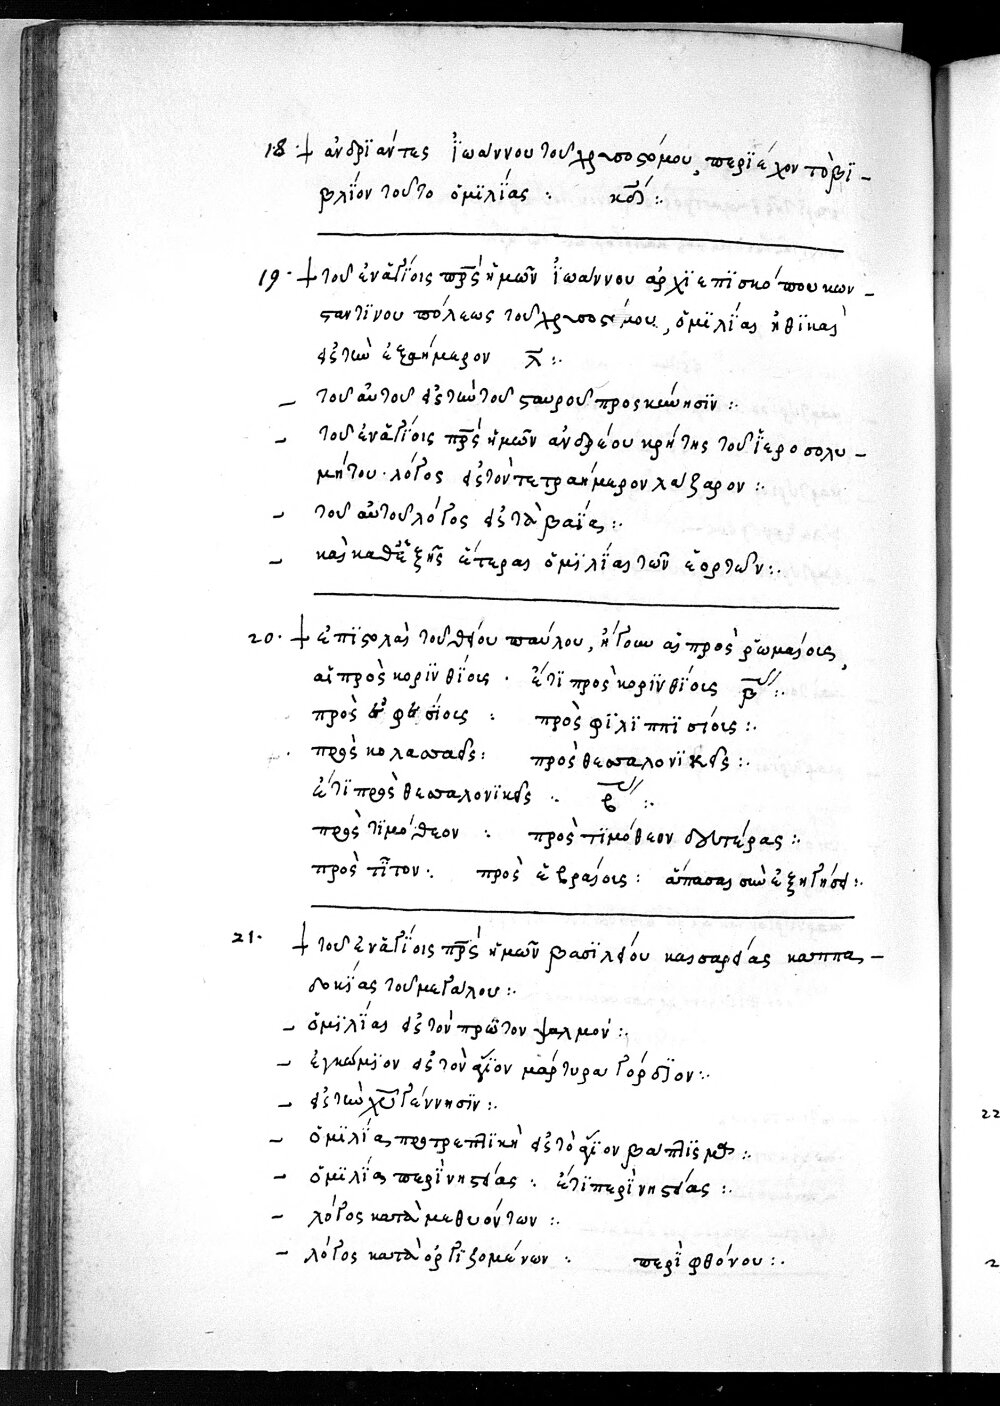 18 · + ἀνδρϊάντες Ἰωάννου τοῦ χρυσοστόμου, περιέχον τὸ βϊ-
βλίον τοῦτο ὁμϊλίας : κδ :.
19 · + τοῦ ἐν ἁγίοις πρς ἡμῶν Ἰωάννου ἀρχϊεπϊσκόπου κων-
σταντϊνουπόλεως τοῦ χρυσοστόμου, ὁμϊλίας ἠθϊκὰς
εἰς τὼ ἑξαήμερον λ :.
– τοῦ αὐτοῦ εἰς τὼ τοῦ σταυροῦ προσκύνησϊν :.
– τοῦ ἐν ἁγίοις πρς ἡμῶν ἀνδρέου κρήτης τοῦ ἱεροσολυ-
μήτου · λόγος εἰς τὸν τετραήμερον λάζαρον :.
– τοῦ αὐτοῦ λόγος εἰς τὰ βαΐα :.
– καὶ καθεξῆς ἕτερας ὁμϊλίας τῶν ἑορτῶν :.
20 · + ἐπϊστολαὶ τοῦ θείου παύλου, ἤγουν αἱ πρὸς ῥωμαίοις,
αἱ πρὸς κορϊνθίοις · ἔτϊ πρὸς κορϊνθίοις β :.
πρὸς ἐφεσίοις : πρὸς φϊλιππϊσίοις :.
πρὸς κολασσαεῖς : πρὸς θεσσαλονϊκεῖς :.
ἔτϊ πρὸς θεσσαλονϊκεῖς · β :.
πρὸς τϊμόθεον : πρὸς τϊμόθεον δευτέρας :.
πρὸς τῖτον · πρὸς ἑβραίοις : ἅπασας σὺν ἐξηγήσει :.
21 · + τοῦ ἐν ἁγίοις πρς ἡμῶν βασϊλείου καισαρείας καππα-
δοκίας τοῦ μεγάλου :.
– ὁμϊλίας εἰς τὸν πρῶτον ψαλμόν :.
– ἐγκώμϊον εἰς τὸν ἅγϊον μάρτυρα γόρδϊον :.
– εἰς τὼ χυ γέννησϊν :.
– ὁμϊλία προτρεπτϊκὴ εἰς τὸ ἅγϊον βάπτϊσμα :.
– ὁμϊλία περὶ νηστείας : ἔτϊ περὶ νηστείας :.
– λόγος κατὰ μεθυόντων :.
– λόγος κατὰ ὀργϊζομένων : περὶ φθόνου :.
22
2